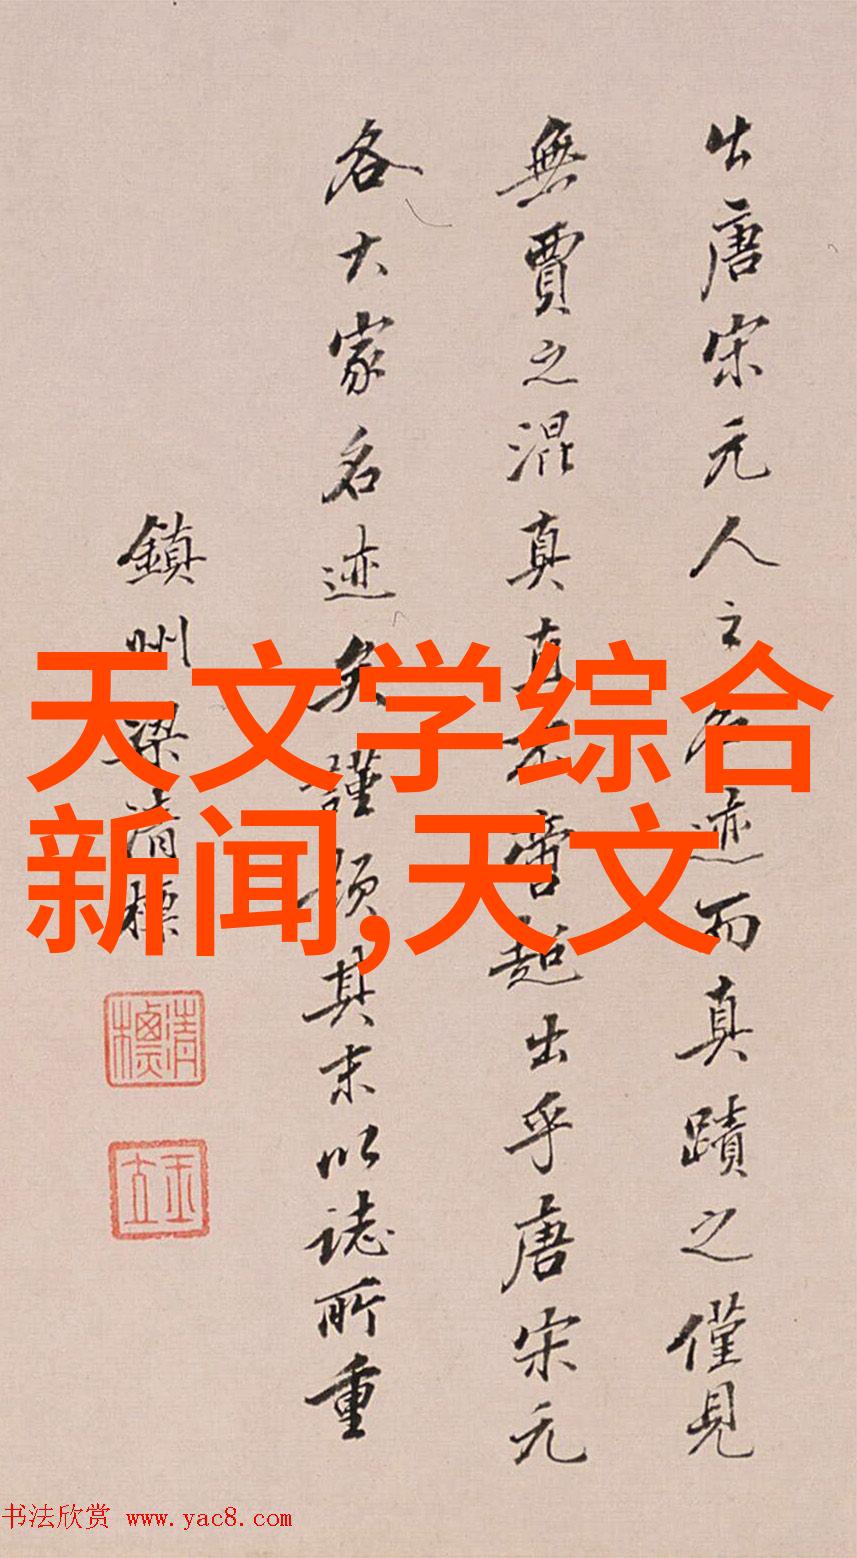 出唐宋元人之名迹而真蹟之僅見
無賈之混真直不啻超出乎唐宋元
各大家名迹矣謹題其末以誌所重
鎮州梁清標
清標
玉立
天文学综合
新闻,天文
书法欣赏 www.yac8.com